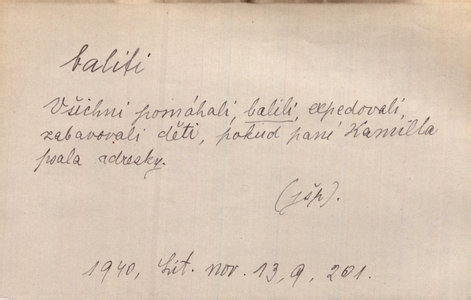 baliti
Všichni pomáhali, balili, expedovali,
zabavovali děti, pokud paní Kamilla
psala adresky.
(jšp).
1940, Lit. nov. 13, 9, 201.